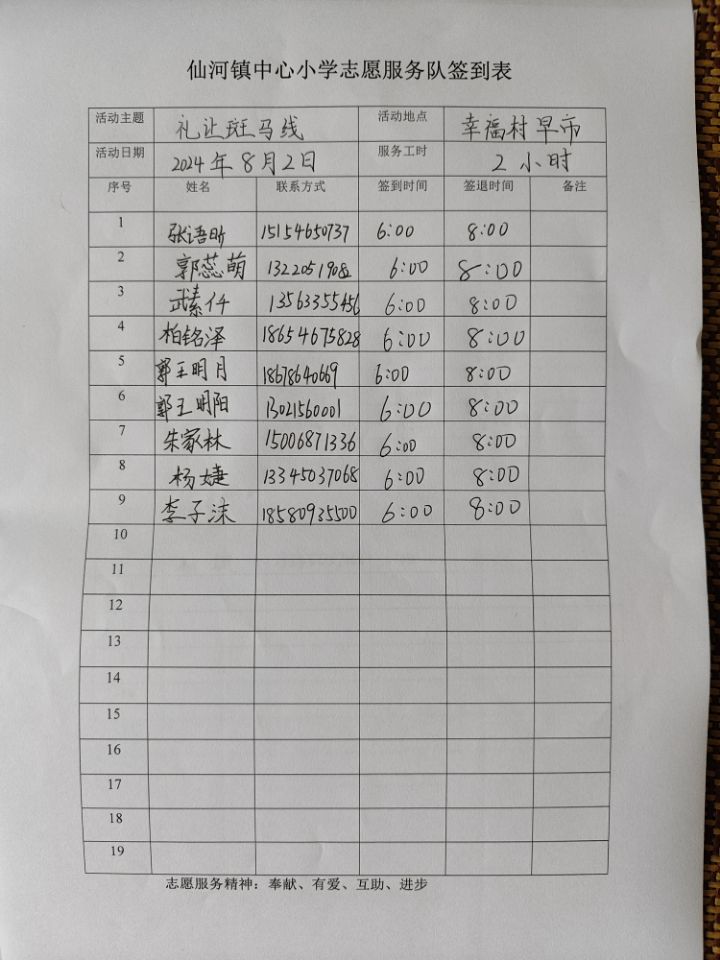 仙河镇中心小学志愿服务队签到表
活动主题 礼让斑马线 活动地点 幸福村早市
活动日期 2024年8月2日 服务工时 2小时
序号 姓名 联系方式 签到时间 签退时间 备注
1 张语昕 15154650737 6:00 8:00
2 郭蕊萌 13220519082 6:00 8:00
3 武素仟 13563355456 6:00 8:00
4 柏铭泽 18654675828 6:00 8:00
5 郭王明月 18678640669 6:00 8:00
6 郭王明阳 13021560001 6:00 8:00
7 朱家林 15006871336 6:00 8:00
8 杨婕 13345037068 6:00 8:00
9 李子沫 18580935500 6:00 8:00
10
11
12
13
14
15
16
17
18
19
志愿服务精神：奉献、有爱、互助、进步